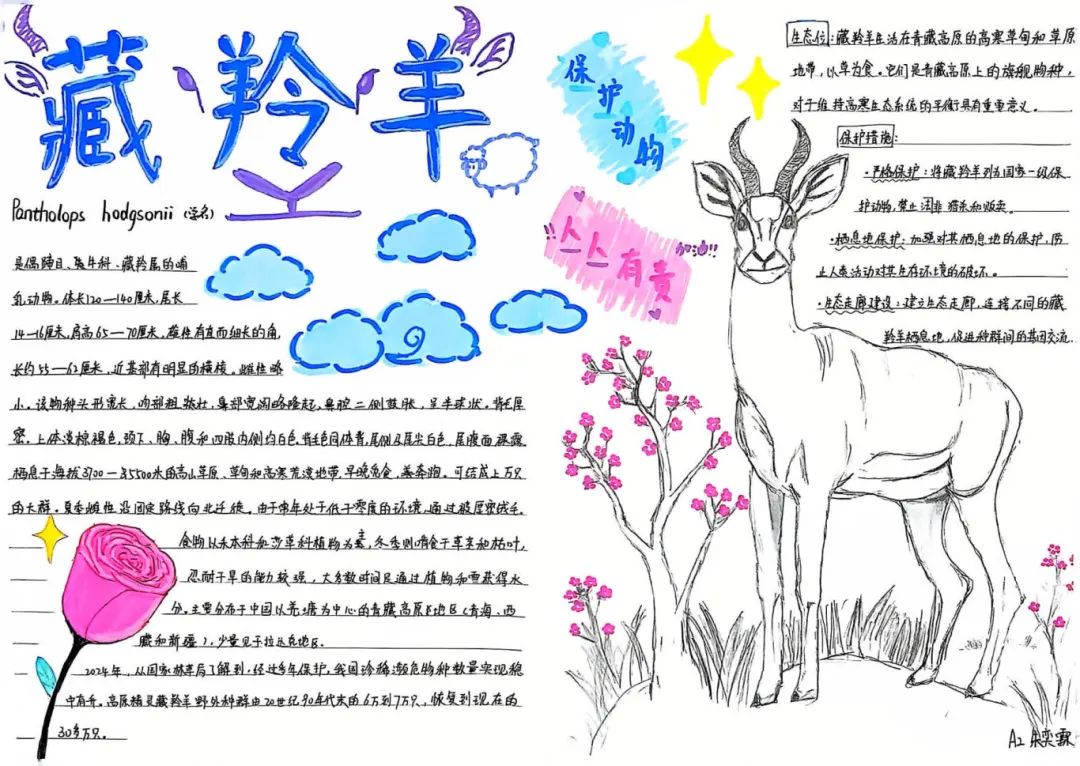 藏羚羊
Pantholops hodgsonii (学名)
是偶蹄目、牛科、藏羚属的哺
乳动物。体长120—140厘米,尾长
14—16厘米,肩高65—70厘米。雄性有直而细长的角,
长约55—62厘米,近基部有明显的横棱。雌性略
小。该物种头形宽长,吻部粗壮,鼻部宽阔略隆起,鼻腔二侧鼓胀,呈半球状。背毛厚
密。上体淡棕褐色,颏下、胸、腹和四肢内侧均白色,背毛同体背,尾侧及尾尖白色,尾腹面裸露
栖息于海拔3700—35500米的高山草原、草甸和高寒荒漠地带,早晚觅食,善奔跑。可结成上万只
的大群。夏季雌性沿固定路线向北迁徙。由于常年处于低于零度的环境,通过被厚密绒毛。
食物以禾本科和莎草科植物为素,冬季则啃食干草茎和枯叶,
忍耐干旱的能力较强,大多数时间是通过植物和雪获得水
分。主要分布于中国以羌塘为中心的青藏高原地区(青海、西
藏和新疆),少量见于拉达克地区。
2024年,从国家林草局了解到,经过多年保护,我国珍稀濒危物种数量实现稳
中有升。高原精灵藏羚羊野外种群由20世纪90年代末的6万到7万只,恢复到现在的
30多万只。
保护动物
人人有责
加油!!
生态位:藏羚羊生活在青藏高原的高寒草甸和草原
地带,以草为食。它们是青藏高原上的旗舰物种,
对于维持高寒生态系统的平衡具有重要意义。
保护措施:
·严格保护:将藏羚羊列为国家一级保
护动物,禁止非法猎杀和贩卖。
·栖息地保护:加强对其栖息地的保护,防
止人类活动对其生存环境的破坏。
·生态走廊建设:建立生态走廊,连接不同的藏
羚羊栖息地,促进种群间的基因交流.
A2 朱奕霖